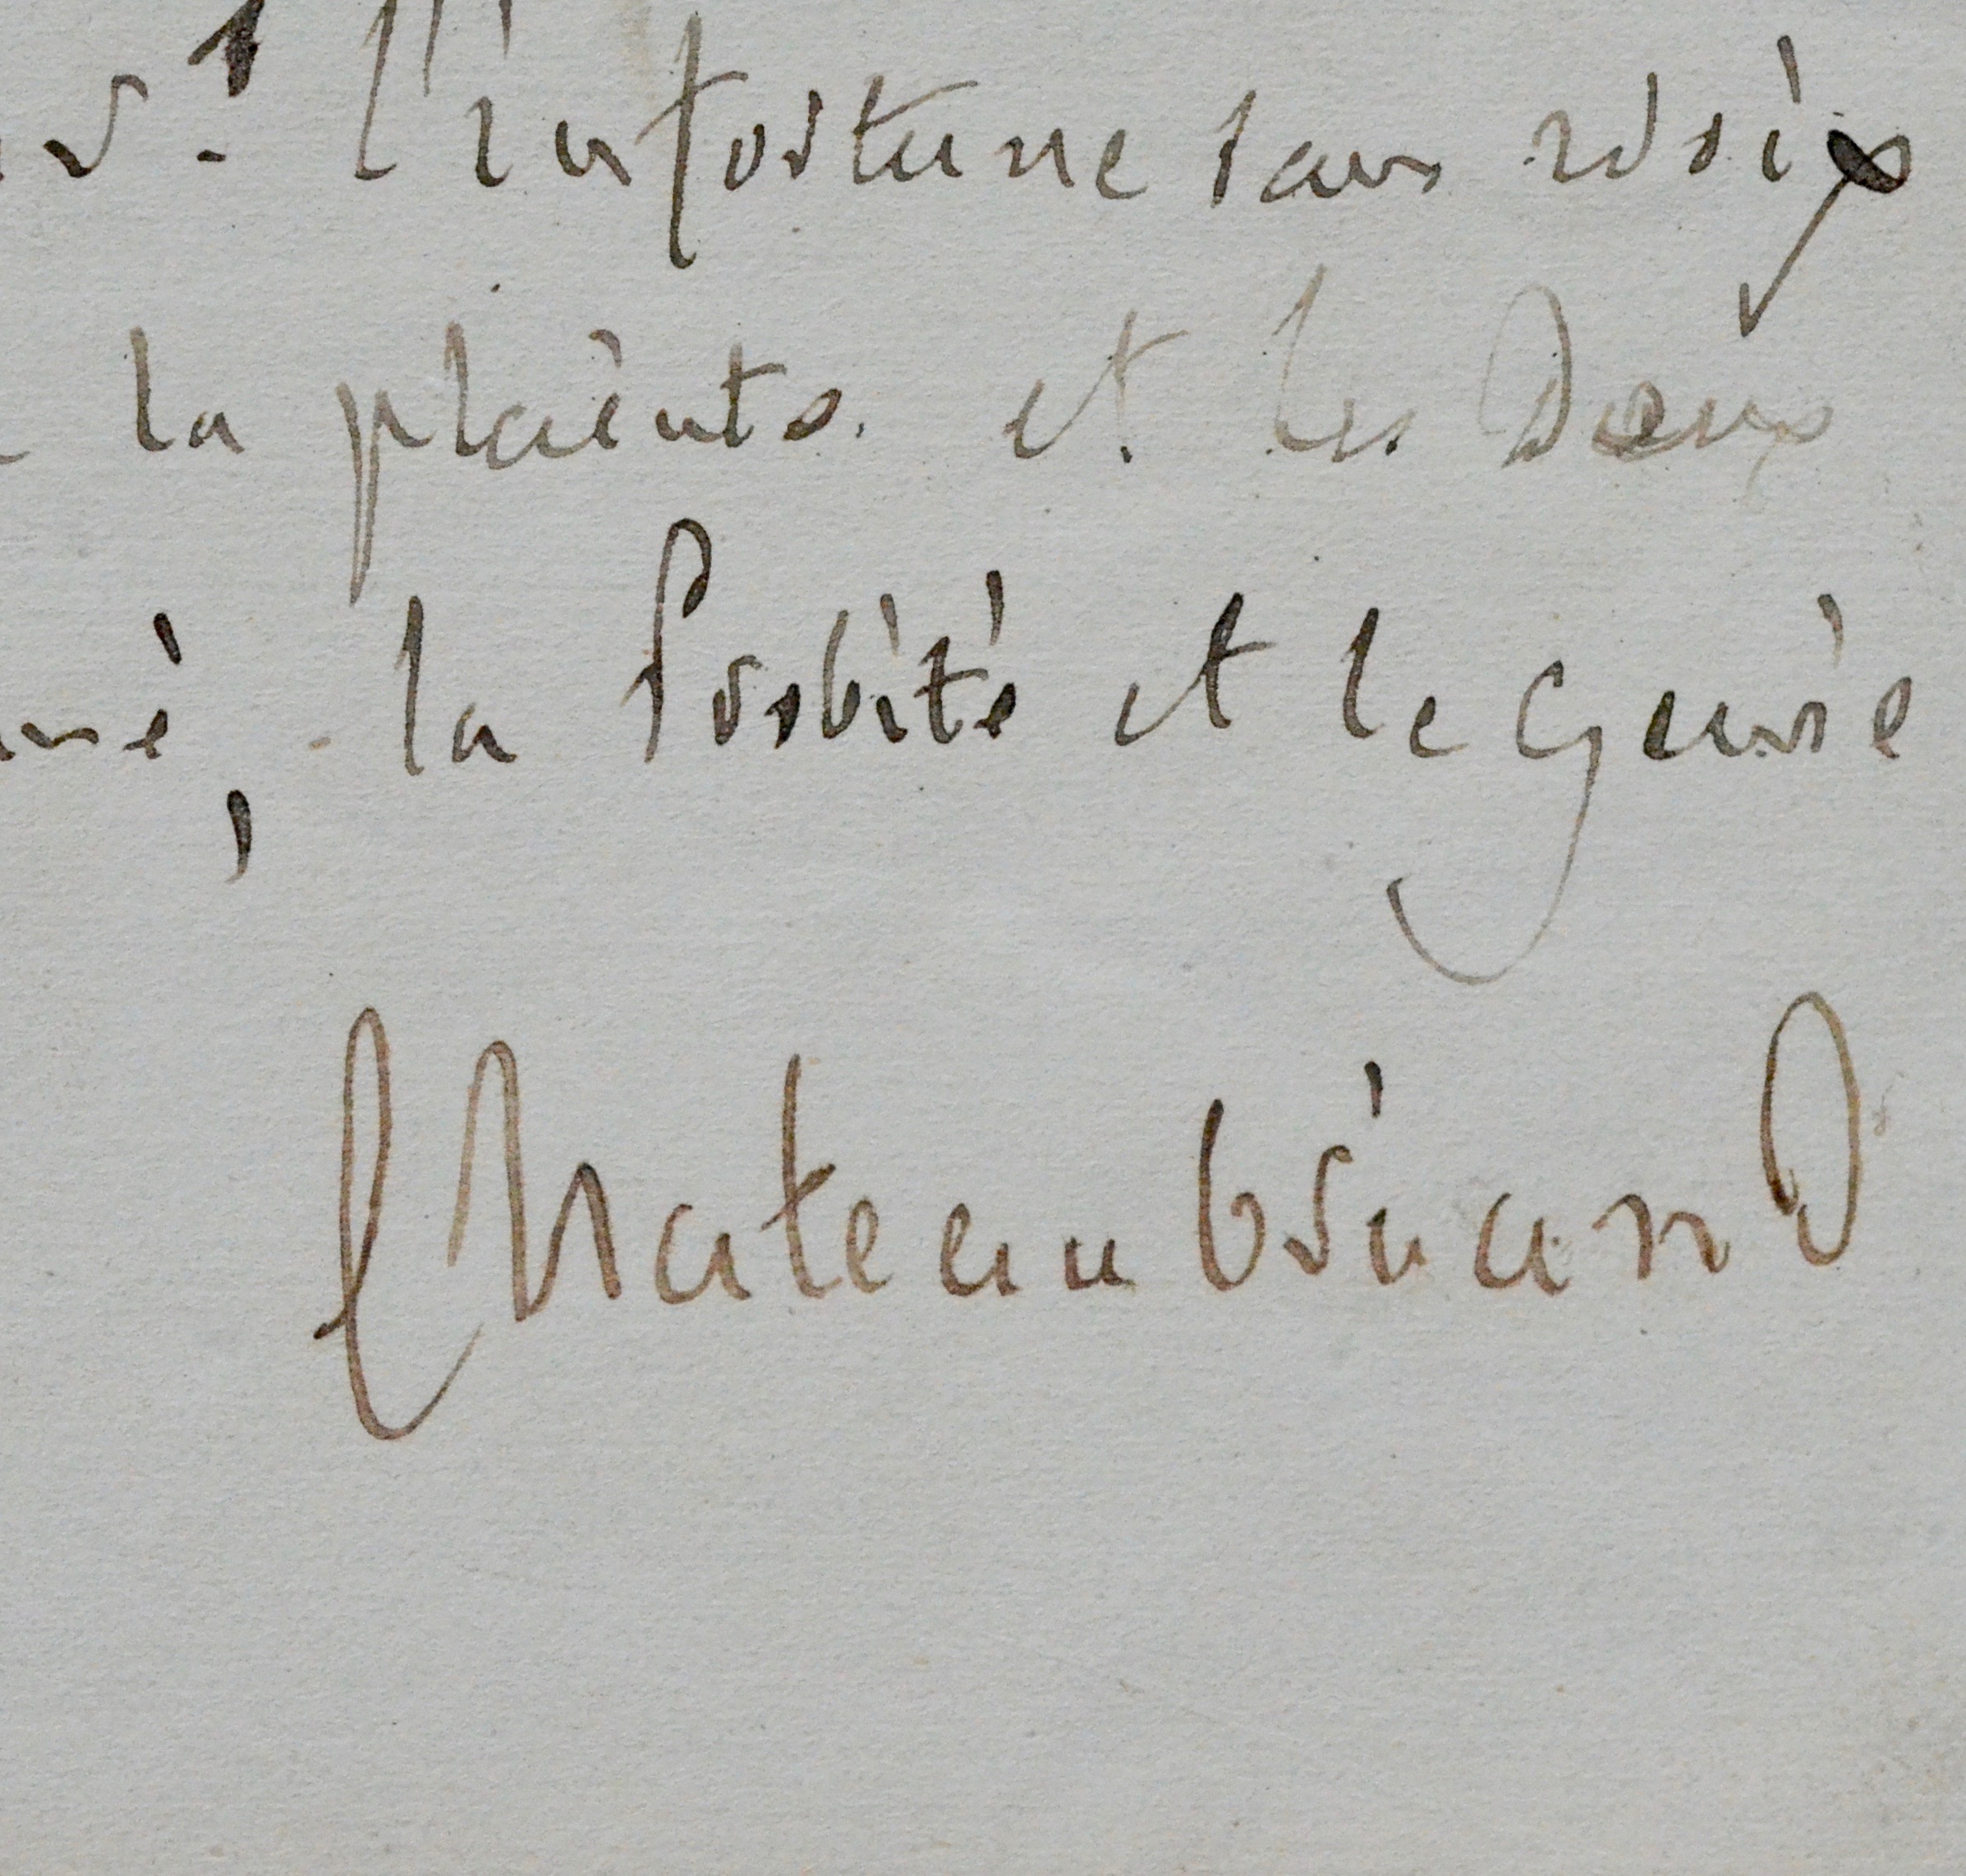 l'infortune sans voix
la plainte. et les Deux
la Probité et le Genie
Chateaubriand